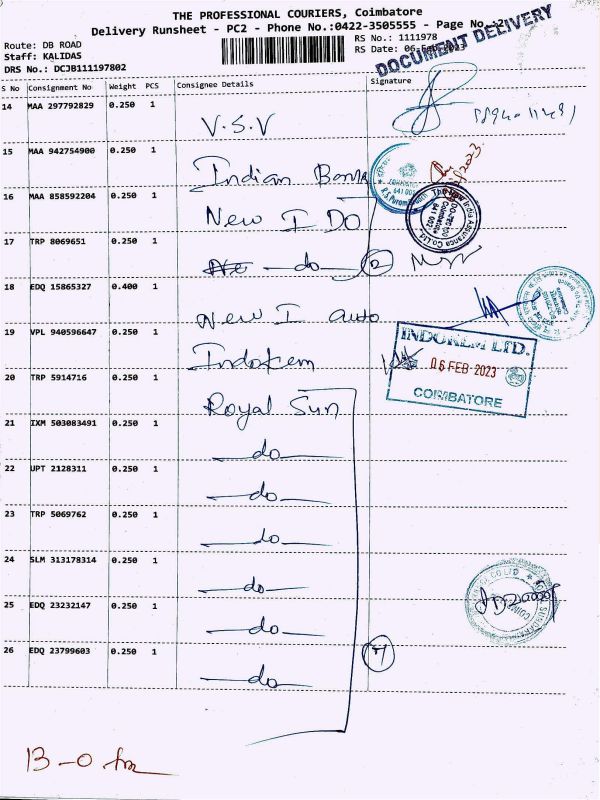 THE PROFESSIONAL COURIERS, Coimbatore
Delivery Runsheet - PC2 - Phone No.:0422-3505555 - Page No.:2
Route: DB ROAD
RS No.: 1111978
Staff: KALIDAS
RS Date: 06-Feb-2023
DRS No.: DCJB111197802
DOCUMENT DELIVERY
S No Consignment No Weight PCS Consignee Details Signature
14 MAA 297792829 0.250 1
V.S.V
15 MAA 942754900 0.250 1
Indian Bank
16 MAA 858592204 0.250 1
New I DO
17 TRP 8069651 0.250 1
do 2
18 EDQ 15865327 0.400 1
New I auto
19 VPL 940596647 0.250 1
Indokem
INDOKEM LTD.
06 FEB 2023
COIMBATORE
20 TRP 5914716 0.250 1
Royal Sun
21 IXM 503083491 0.250 1
do
22 UPT 2128311 0.250 1
do
23 TRP 5069762 0.250 1
do
24 SLM 313178314 0.250 1
do
25 EDQ 23232147 0.250 1
do
26 EDQ 23799603 0.250 1
do
13-0